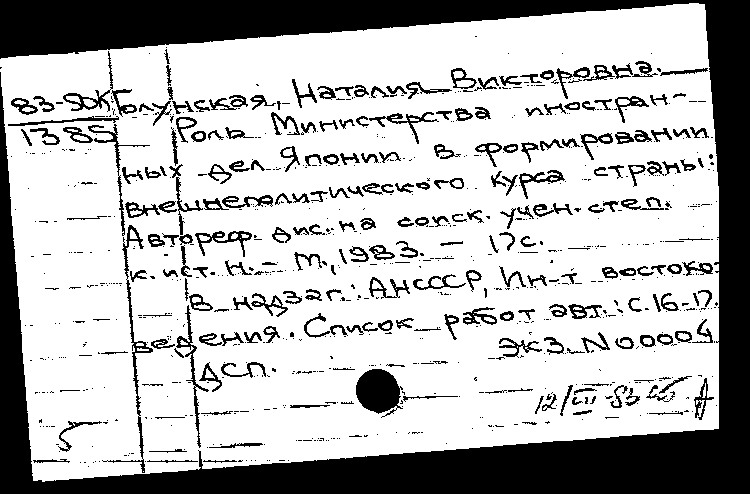 83-5ДК Голунская, Наталия Викторовна.
1385 Роль Министерства иностран-
ных дел Японии в формировании
внешнеполитического курса страны:
Автореф. дис. на соиск. учен. степ.
к. ист. н. - М., 1983. - 17с.
В надзаг.: АН СССР, Ин-т востоко-
ведения. Список работ авт.: с. 16-17.
Экз. N 00004
ДСП.
12/VII-83
5